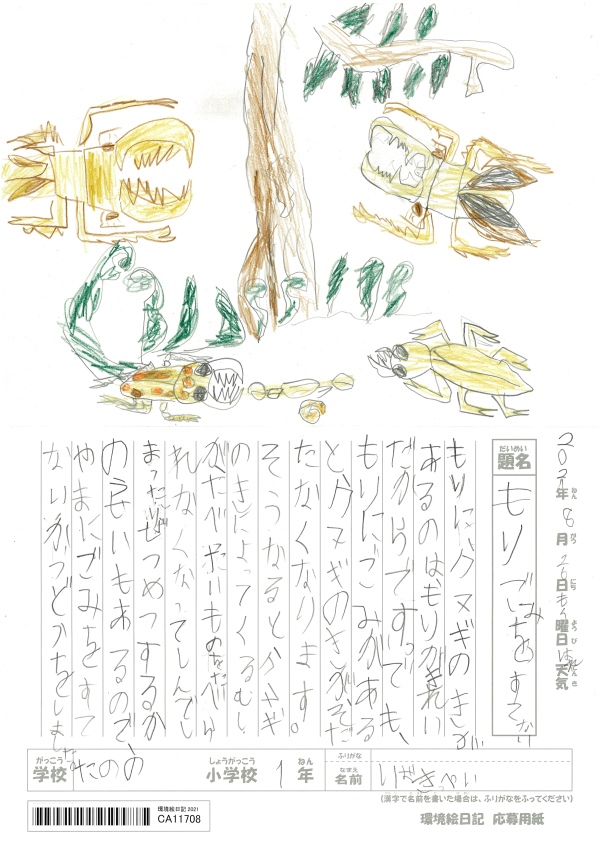 2021年ねん 8月がつ 26日にち もく曜日ようび はれ天気てんき
だいめい
題名
もりでごみをすてない
もりにクヌギのきが
あるのはもりがきれい
だからです。でも、
もりにごみがある
と、クヌギのきがそだ
たなくなります。
そうなるとクヌギ
のきによってくるむし
がたべたいものをたべら
れなくなってしんでし
まったり、ぜつめつするか
のうせいもあるので、
やまにごみをすて
ないかつどうをしましょう
がっこう
学校
たのの
しょうがっこう
小学校
1
ねん
年
ふりがな
なまえ
名前
(漢字で名前を書いた場合は、ふりがなをふってください)
環境絵日記 2021
CA11708
環境絵日記 応募用紙